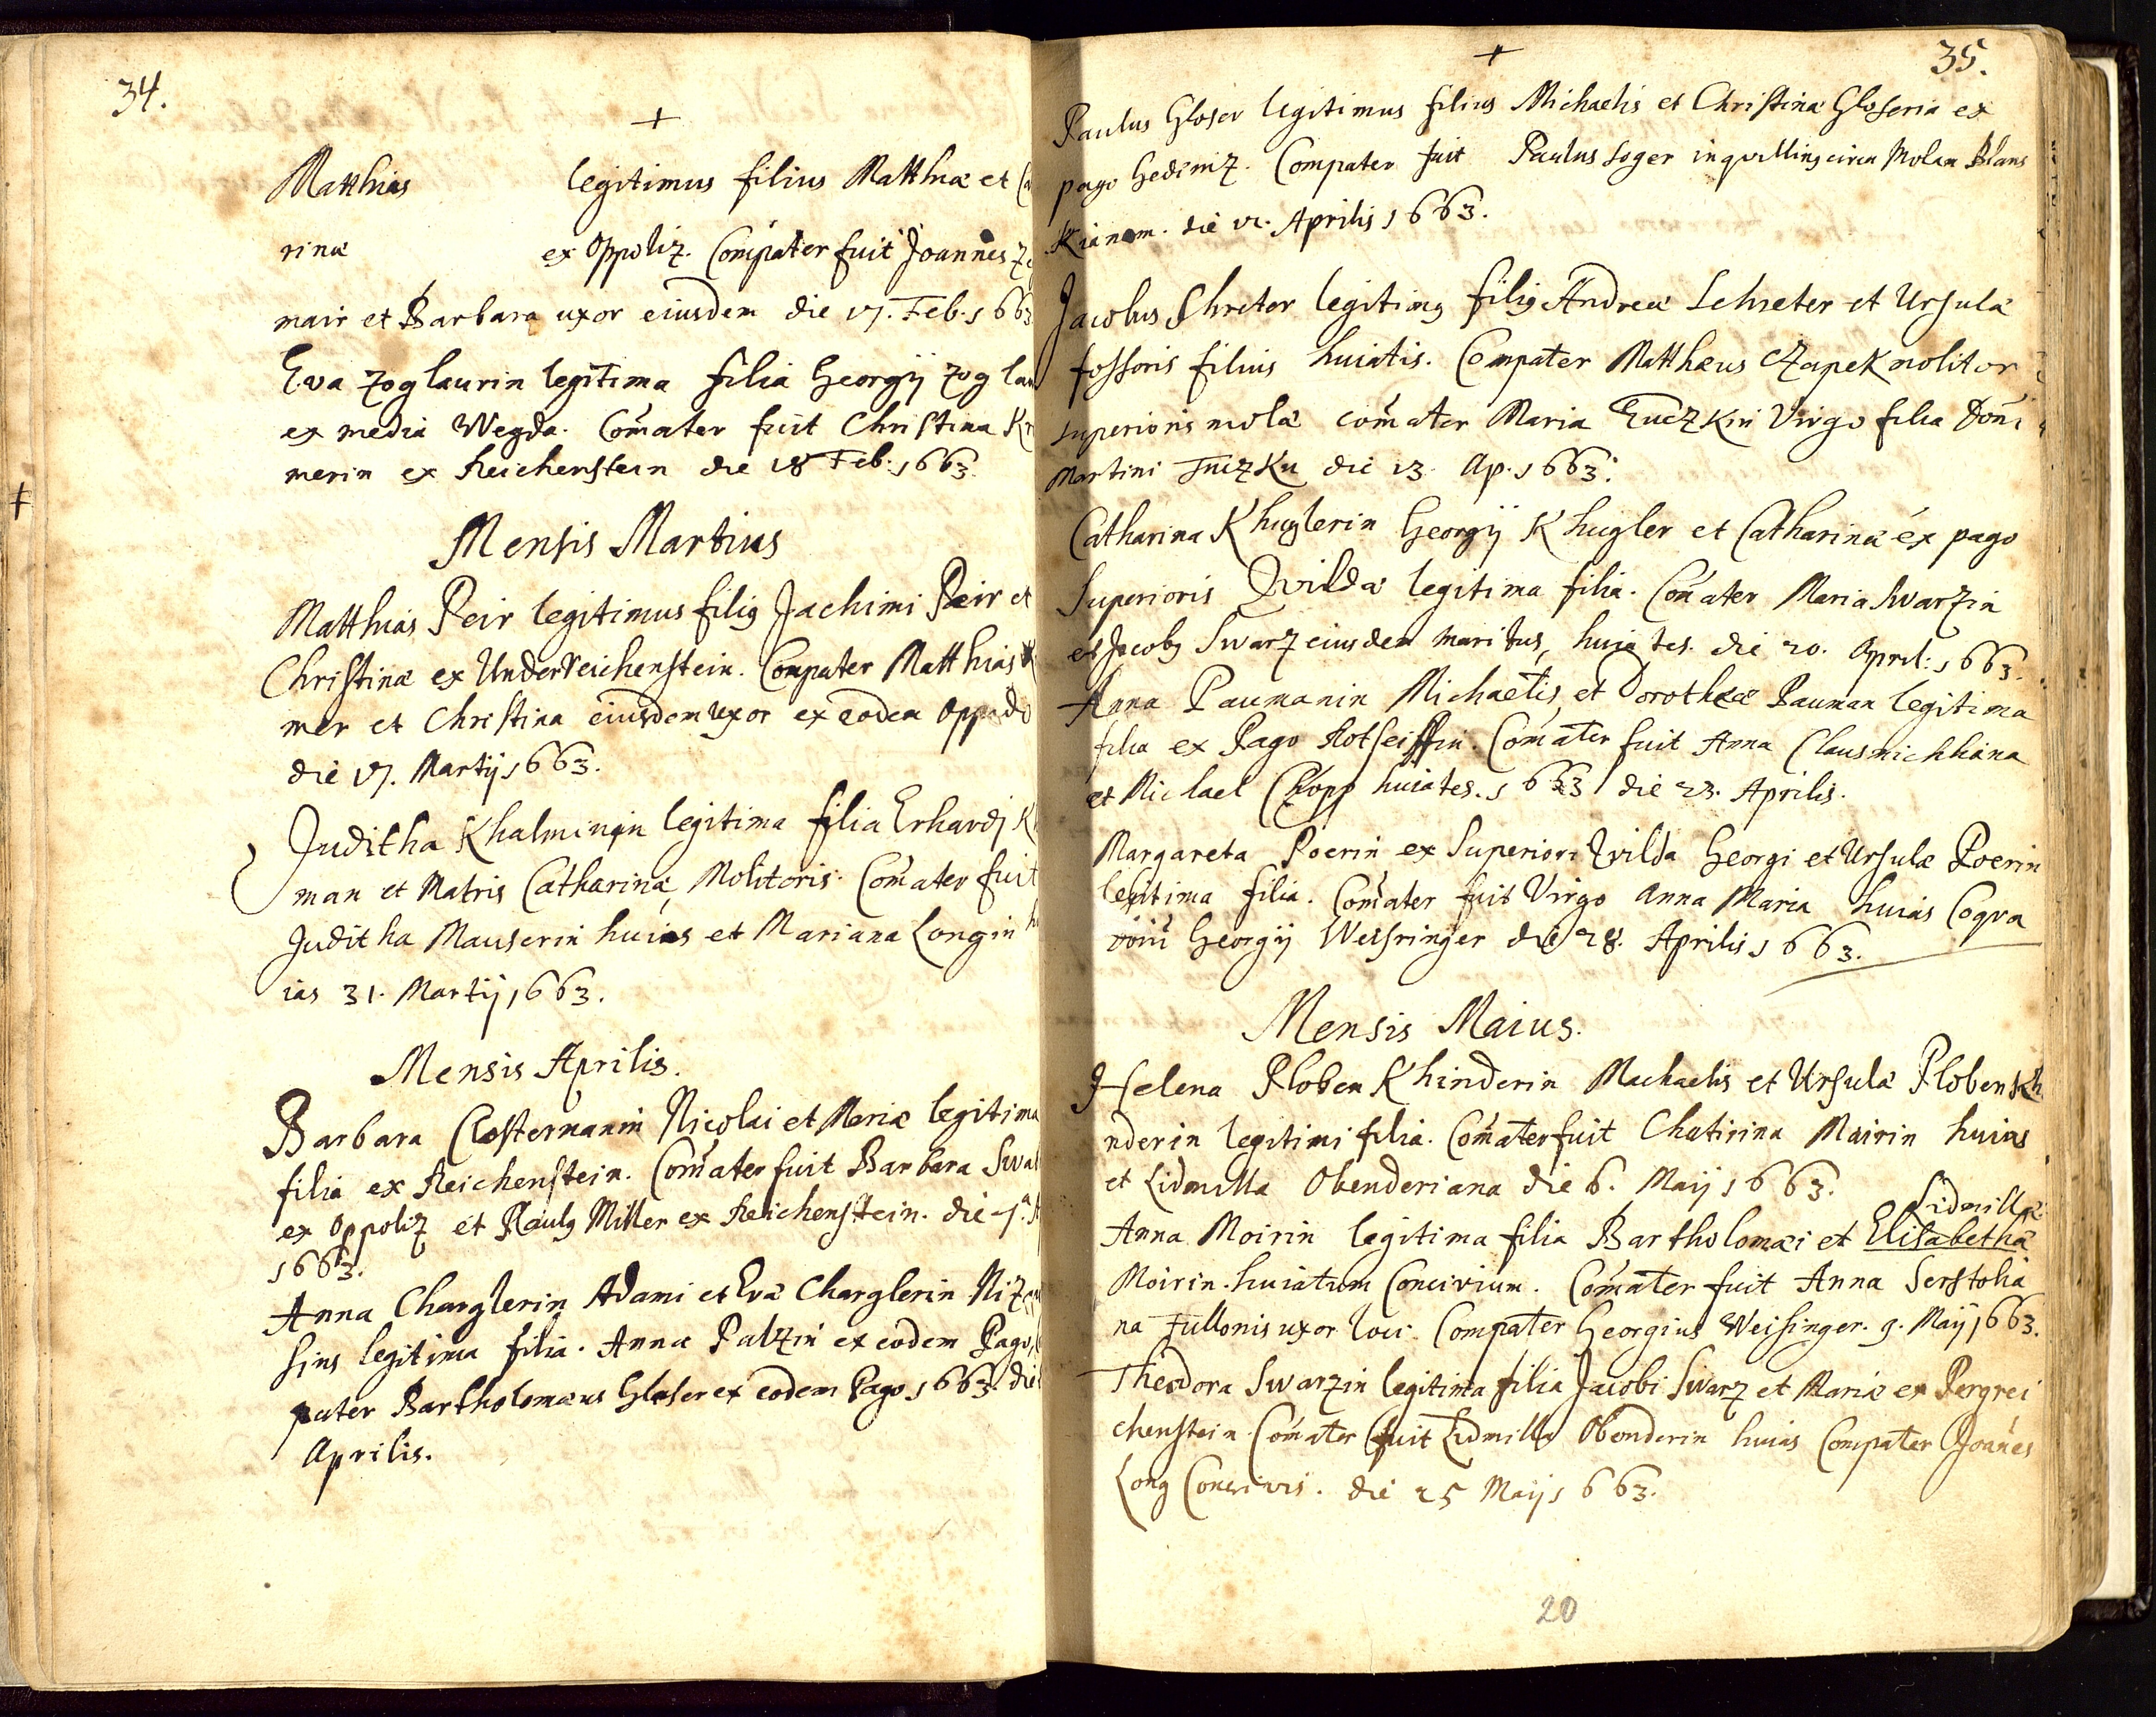 34.
+
Matthias legitimus filius Matthiæ et
rinæ ex Oppoliz. Compater fuit Joannes
mair et Barbara uxor eiusdem die 17. Feb. 1663
Eva Zoglaurin legitima filia Georgij Zoglau
ex media Wegda. Com̃ater fuit Christina
merin ex Reichenstein die 18 Feb. 1663.
Mensis Martius
Matthias Peir legitimus filiꝰ Jachimi Peir et
Christinæ ex Underreichenstein. Compater Matthias
mer et Christina eiusdem uxor ex eodem Oppido
die 17. Martij 1663.
Juditha Khalmin̄in legitima filia Erhardj
man et Matris Catharinæ, Molitoris. Com̃ater fuit
Juditha Mauserin huias et Mariana Longin
ias 31. Martij 1663.
Mensis Aprilis.
Barbara Clostermanin Nicolai et Mariæ legitima
filia ex Reichenstein. Com̃ater fuit Barbara
ex Oppoliz et Paulꝰ Miller ex Reichenstein. die
1663.
Anna Charglerin Adami et Evæ Charglerin
sins legitima filia. Anna Palzin ex eodem Pago,
pater Bartholomæus Glaser ex eodem Pago 1663. die
Aprilis.
+
35.
Paulus Gloser legitimus filius Michaelis et Christinæ Gloserin ex
pago Gediniz. Compater fuit Paulus Soger inquilling circa Molam Blans
Kianam. die 12. Aprilis 1663.
Jacobus Shreter legitimꝰ filiꝰ Andreæ Schreter et Ursulæ
fossoris filius huiatis. Compater Matthæus Czapek molitor
superioris molæ com̃ater Maria Virgo filia Dom̃i
Martini die 13. Ap. 1663.
Catharina Khuglerin Georgij Khugler et Catharinæ ex pago
Superioris Qvildæ legitima filia. Com̃ater Maria Swarzin
et Jacobꝰ Swarz eiusdem maritus, huiates. die 20. April: 1663.
Anna Paumanin Michaelis, et Dorotheæ Pauman legitima
filia ex Pago Rotseiffin. Com̃ater fuit Anna Clausmichliana
et Michael huiates. 1663 die 23. Aprilis.
Margareta Poerin ex Superiori Qvilda Georgi et Ursulæ Poerin
legitima filia. Com̃ater fuit Virgo Anna Maria huias Coqva
Georgij Weisringer die 28. Aprilis 1663.
Mensis Maius.
Helena PlobenKhinderin Machaelis et Ursulæ PlobenKh
nderin legitimi filia. Com̃ater fuit Chatirina Mairin huias
et Lidmilla Obenderiana die 6. Maij 1663.
Lidmillæ
Anna Moirin legitima filia Bartholomæi et Elisabethæ
Moirin. huiatum Concivium. Com̃ater fuit Anna Serstolia
na Fullonis uxor loci. Compater Georgius Weisinger. 9. Maij 1663.
Theodora Swarzin legitima filia Jacobi Swarz et Mariæ ex Pergrei
chenstein. Com̃ater fuit Lidmilla Obenderin huias Compater Joan̄es
Long Concivis. die 25 Maij 1663.
20